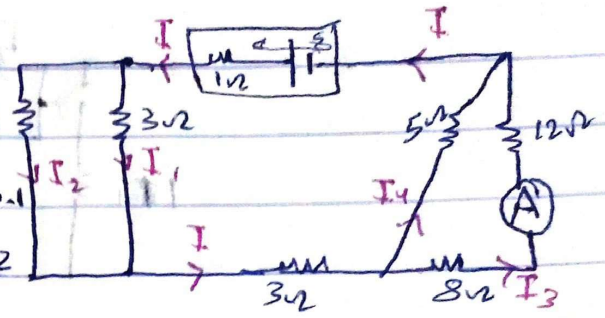 I
I
ε
1Ω
3Ω
5Ω
12Ω
I₂
I₁
I₄
A
I
3Ω
8Ω
I₃